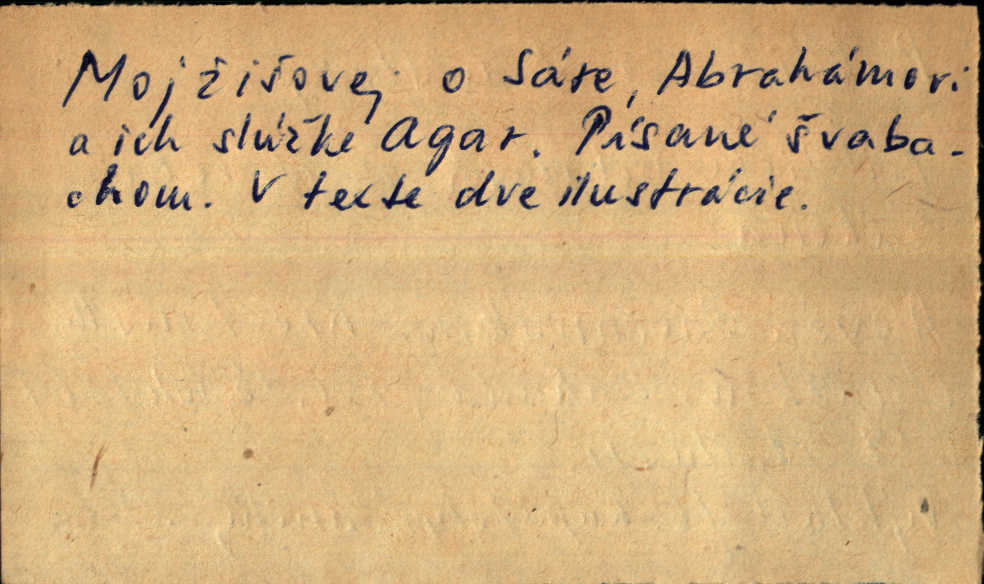 Mojžišovej o Sáre, Abrahámovi
a ich slúžke Agar. Písané švaba-
chom. V texte dve ilustrácie.